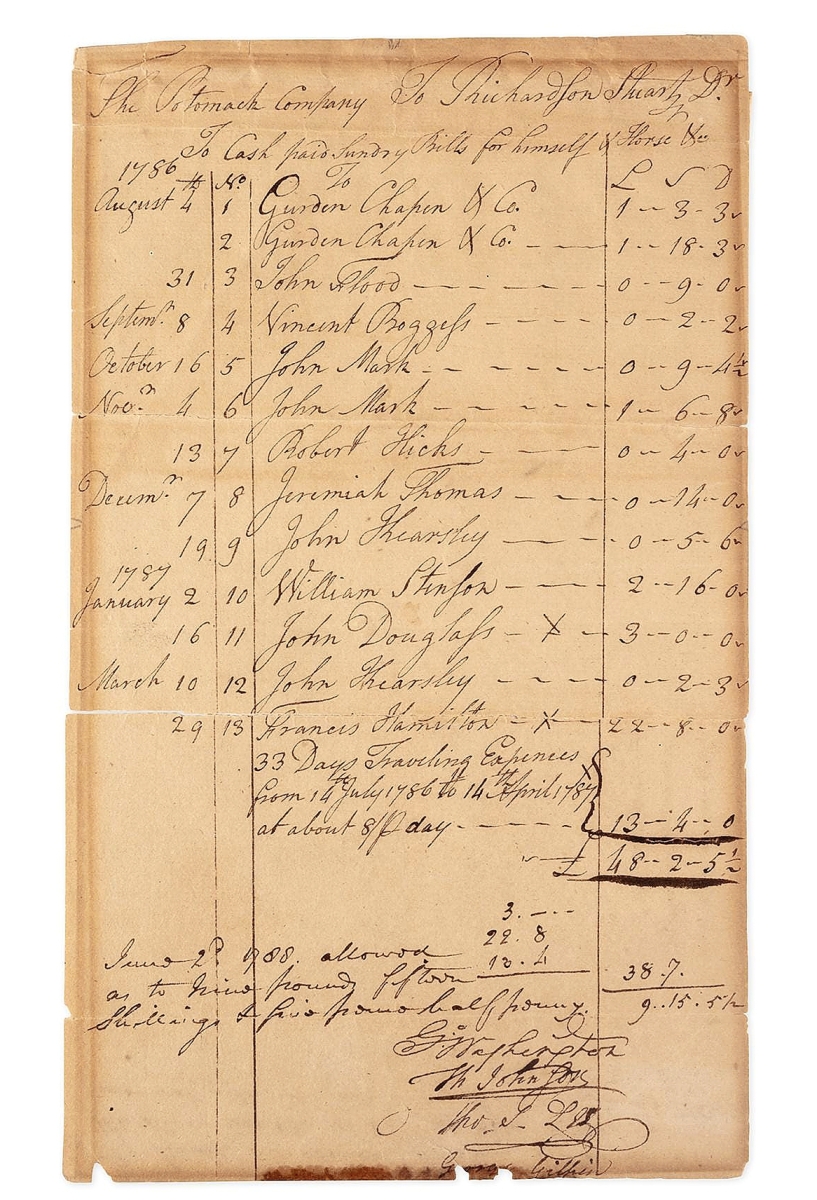 The Potomack Company To Richardson Stuart Dr
To Cash paid Sundry Bills for himself & Horse &c
1786 th No To L S D
August 4 1 Gurden Chapen & Co. 1 -- 3 -- 3
2 Gurden Chapen & Co. - — 1 -- 18 - 3
31 3 John Flood — — — — — 0 -- 9 - 0
Septemr 8 4 Vincent Boggess - - - - 0 -- 2 -- 2
October 16 5 John Mark - - - - - 0 -- 9 -- 4 1/2
Novr 4 6 John Mark - - - - - 1 -- 6 -- 8
13 7 Robert Hicks - - - - 0 -- 4 -- 0
Decemr 7 8 Jeremiah Thomas - - — 0 -- 14 - 0
19 9 John Kearsley - - — 0 -- 5 -- 6
1787
January 2 10 William Stinson - - — 2 -- 16 - 0
16 11 John Douglass - X - - 3 -- 0 -- 0
March 10 12 John Kearsley - - - - 0 -- 2 -- 3
29 13 Francis Hamilton - X — 22 -- 8 -- 0
33 Days Traveling Expences
from 14th July 1786 to 14th April 1787
at about 8/ P day - - - - - 13 -- 4 -- 0
£ 48 -- 2 -- 5 1/2
3. - - -
22. 8
June 2d. 1788. allowed 13. 4 38. 7.
as to Nine pounds fifteen 9..15. 5 1/2
Shillings & five pence half penny.
Go Washington
Th Johnson
Tho S Lee
George Gilpin